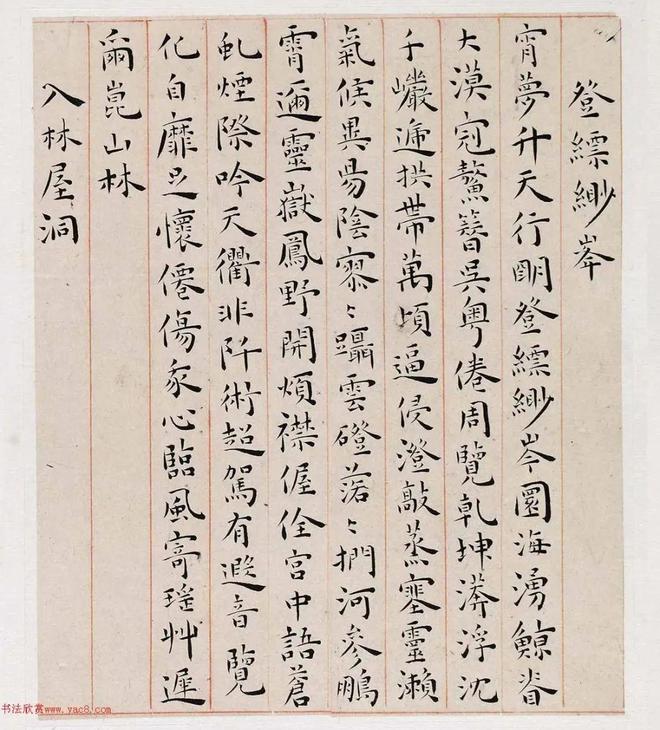 登縹緲峯
宵夢升天行朙登縹緲岑圜海湧鯨脊
大漠冠鰲簪吳粤倦周覽乾坤漭浮沈
千巗遞拱帶萬頃逼侵澄歊蒸塞靈瀨
氣候異昜陰寥〻躡雲磴落〻捫河參鵬
霄邇靈嶽鳳野開煩襟偓佺宮中語蒼
虬煙際吟天衢非阡術超駕有遐音覽
化自靡足懷僊傷我心臨風寄瑤艸遲
爾崑山林
入林屋洞
书法欣赏www.yac8.com